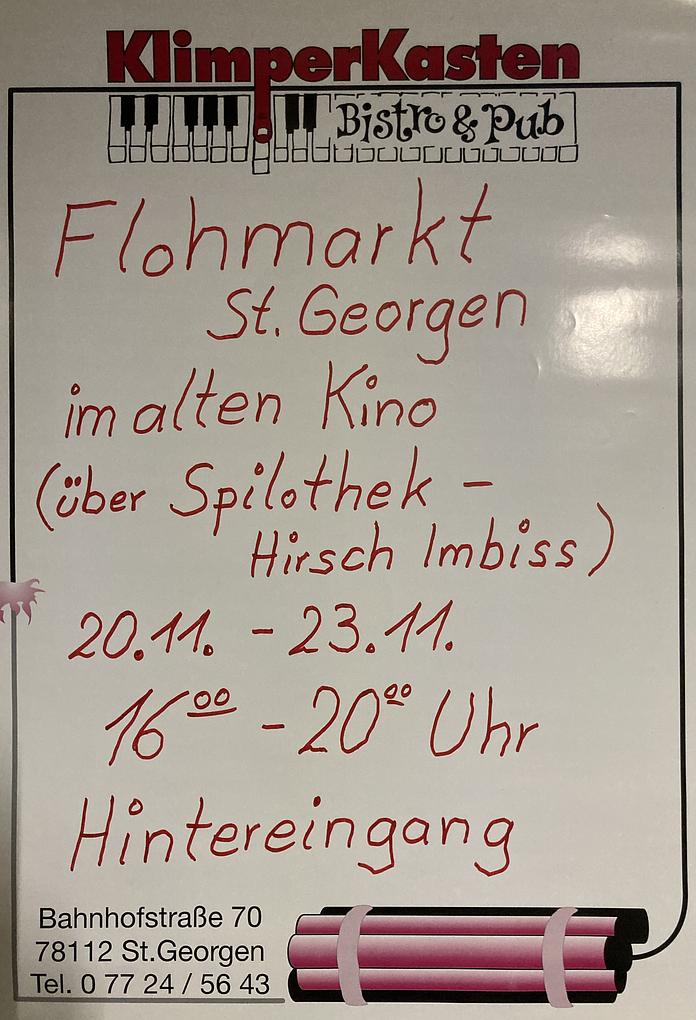 KlimperKasten
Bistro & Pub
Flohmarkt
St. Georgen
im alten Kino
(über Spilothek -
Hirsch Imbiss)
20.11. - 23.11.
16⁰⁰ - 20⁰⁰ Uhr
Hintereingang
Bahnhofstraße 70
78112 St.Georgen
Tel. 0 77 24 / 56 43